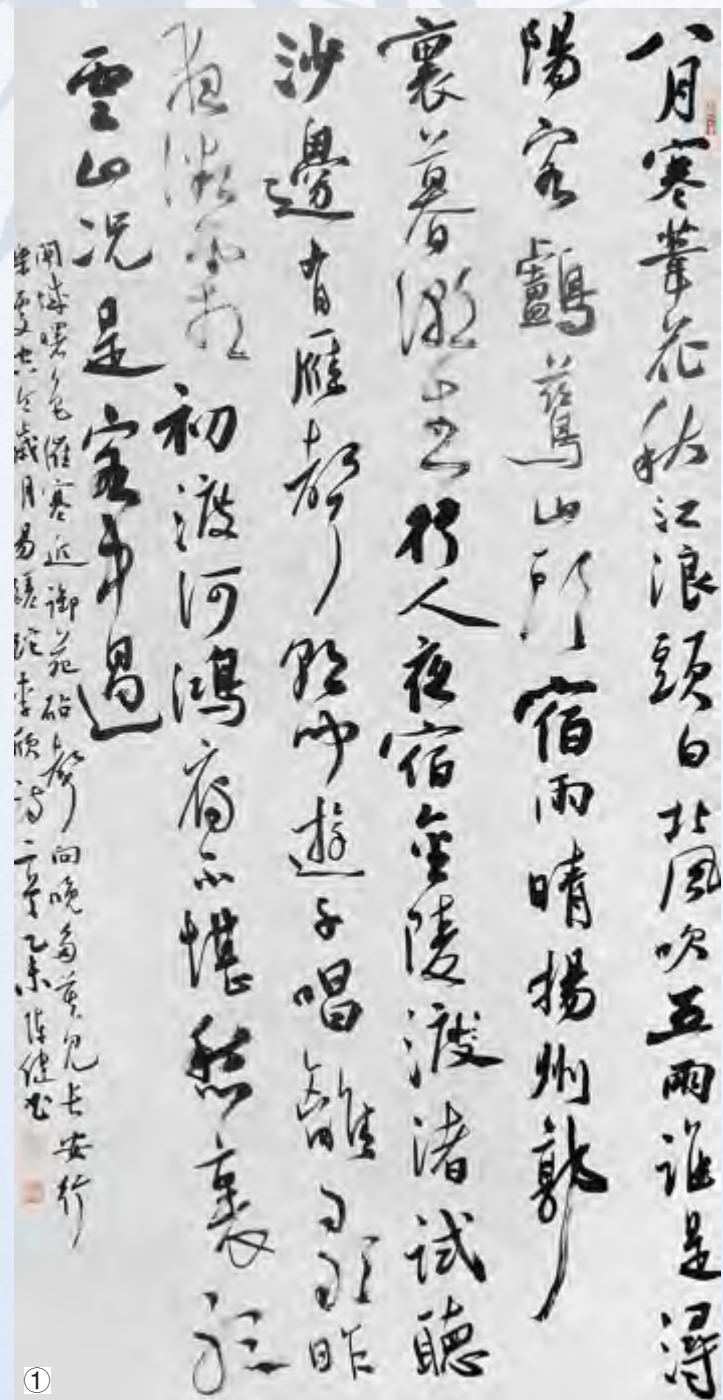 八月寒葦花秋江浪頭白北風吹五兩誰是潯
陽客鸕鶿山頭宿雨晴揚州郭
裏暮潮生行人夜宿金陵渡渚試聽
沙邊有雁聲朝聞遊子唱離歌昨
夜微霜初渡河鴻雁不堪愁裏聽
雲山況是客中過
關城曙色催寒近御苑砧聲向晚多莫見長安行
樂處空令歲月易蹉跎李頎詩二章乙未陳健書
①